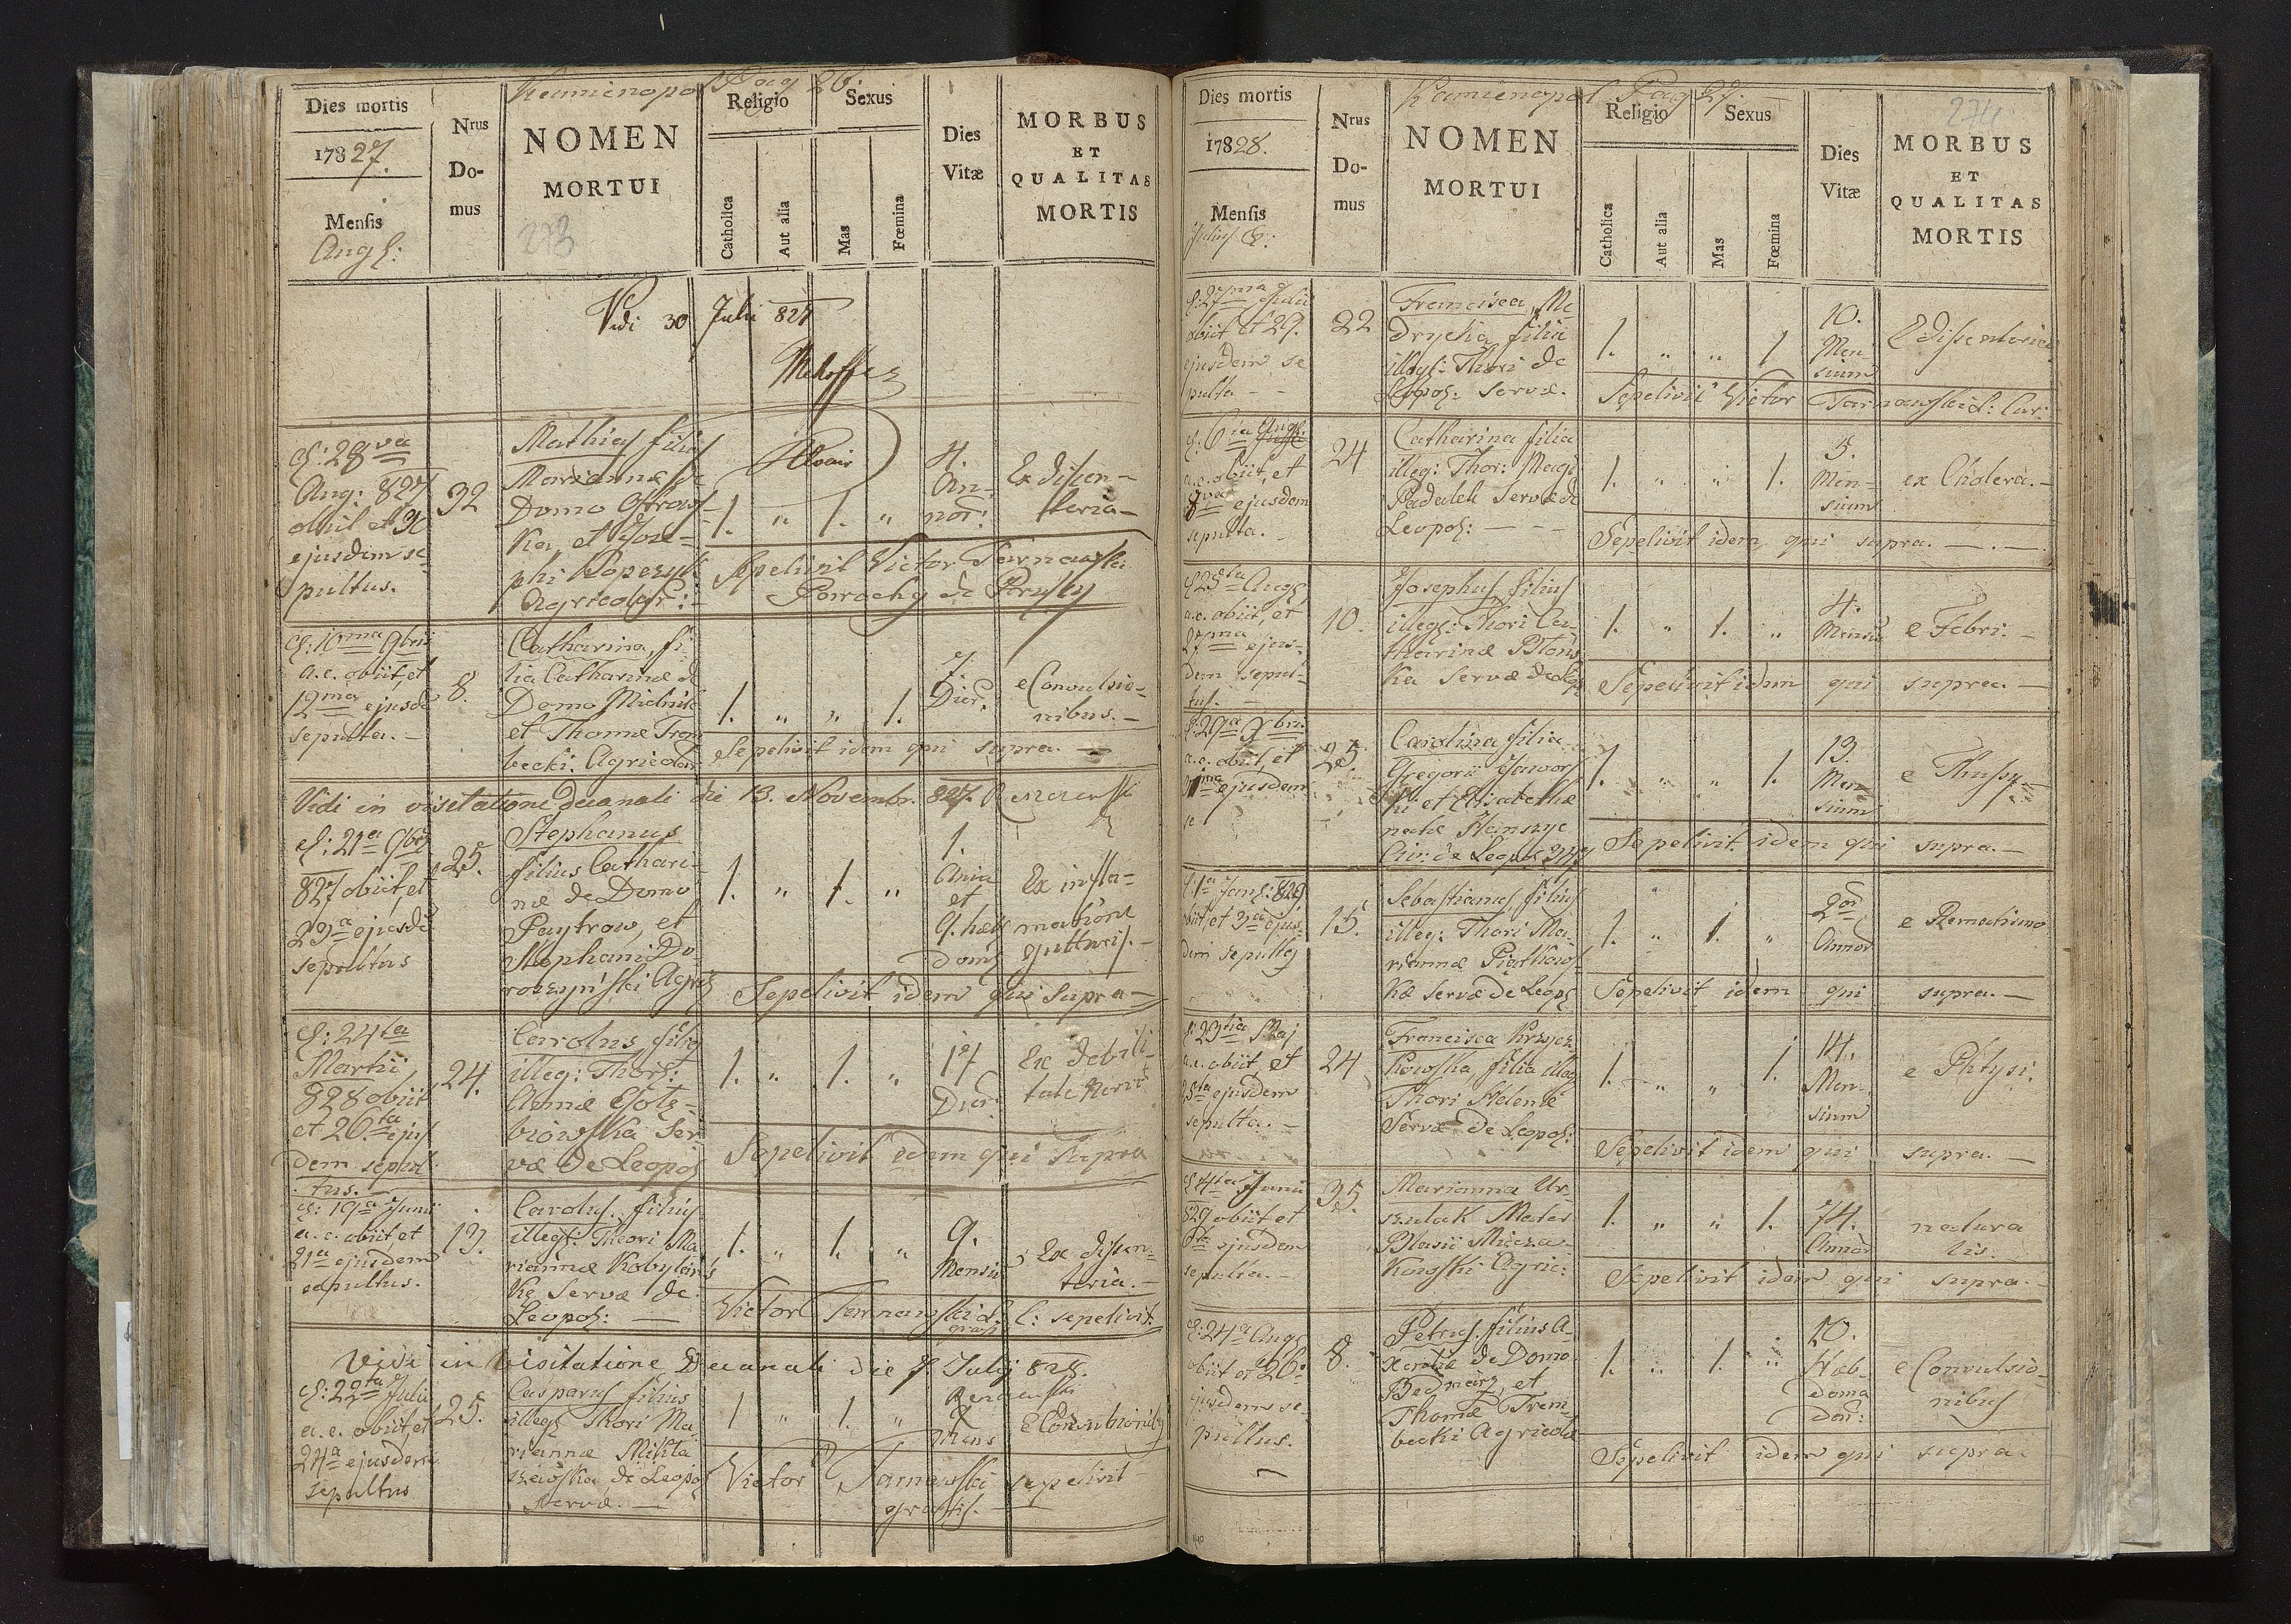 Kamienopol Pag 26.
Dies mortis
17827.
Mensis
Nrus
Do-
mus
NOMEN
MORTUI
Religio
Catholica
Aut alia
Sexus
Mas
Fœmina
Dies
Vitæ
MORBUS
ET
QUALITAS
MORTIS
273
Vidi 30 Julii 827
d: 28va
Aug: 827
obiit et 30
ejusdem se-
pultus.
32
Mathias filius
Mariannæ de
Domo
ka, et Jose-
phi
Agricolar:
1. „ 1. „
4.
An-
nor:
Ex disen-
teria
Sepelivit Victor Tarnawski
d: 10ma 9bris
a.c. obiit, et
12ma ejusd
sepulta.
8.
Catharina, fi-
lia Catharinæ de
Domo Mielnik
et Thomæ Trem
becki. Agricolar
1. „ „ 1.
7.
Dier.
e Convulsio-
nibus.
Sepelivit idem qui supra.
Vidi in visitatione decanali die 13. Novembr. 827.
d: 21a 9bris
827 obiit, et
23a ejusd
sepultus
25.
Stephanus
filius Cathari-
næ de Domo
et
Stephani Do-
roszyński Agric
1. „ 1. „
1.
et
9. heb
dom
Ex infla-
matione
gutturis.
Sepelivit idem qui supra
d: 24ta
Martii
828 obiit
et 26ta ejus
dem sepul-
tus.
24.
Carolus filius
illeg: Thori:
Annæ Gołę-
biowska Ser-
væ de Leopol
1. „ 1. „
17
Dier:
Ex debili-
tate
Sepelivit idem qui supra
d: 19a Junii
a.c. obiit et
21a ejusdem
sepultus.
13.
Carolus filius
illegt. Thori Ma
riannæ Kobylańs
ka Servæ de
Leopol:
1. „ 1. „
9.
Mensiu
Ex disen-
teria.
Victor Tarnawski L. C: sepelivit.
Vidi in Visitatione Decanali die 7. Julij 828.
a.c. obiit, et
24a ejusdem
sepultus
25.
Casparus filius
illegt Thori Ma
riannæ Mikita
szewska de Leopol
Servæ.
1 „ 1. „
Mens
e Convulsionibus
Victor Tarnawski sepelivit
gratis.
Kamienopol Pag 27.
Dies mortis
17828.
Mensis
Nrus
Do-
mus
NOMEN
MORTUI
Religio
Catholica
Aut alia
Sexus
Mas
Fœmina
Dies
Vitæ
MORBUS
ET
QUALITAS
MORTIS
274
d: 27ma Julii
obiit et 29.
ejusdem se
pulta
22
Francisca Me
drycka, filia
illegt: Thori de
Leopol: Servæ.
1. „ „ 1
10.
Men-
sium
E dissenteria
Sepelivit Victor Tarnawski L: Cur:
a.c. obiit, et
8va ejusdem
sepulta.
24
Catharina filia
illeg: Thor: Magd
Padalek Servæ de
Leopol:
1. „ „ 1.
5.
Men-
sium
ex Cholera.
Sepelivit idem, qui supra.
d 25ta Aug
a.c. obiit, et
27ma ejus-
dem sepul-
tus.
10.
Josephus filius
illegt: Thori Ca-
tharinæ Błons
ka Servæ de Leop
1. „ 1. „
4.
Mensiu
e Febri.
Sepelivit idem qui supra.
d: 29a
a.c. obiit, et
ejusdem
se
25.
Carolina filia
Gregorii Jawors
ki et Elisabethæ
natæ
Civ: de Leopol
1. „ „ 1.
13.
Men-
sium
e
Sepelivit idem qui supra.
d: 1a Jan: 829
obiit, et 3a ejus-
dem sepultus
15.
Sebastianus filius
illeg: Thori Ma-
riannæ Piątkows
kæ Servæ de Leopol
1. „ 1. „
2or
Annor
e Rematismo
Sepelivit idem qui supra.
d: 23tia Maj
a.c. obiit, et
25ta ejusdem
sepulta.
24
Francisca Krzyża
kowska, filia illeg
Thori Helenæ
Servæ de Leopol:
1. „ „ 1.
14.
Men-
sium
e Phtysi.
Sepelivit idem qui supra.
d 4ta Junii
829 obiit et
6ta ejusdem
sepulta.
35.
Marianna Ur-
szulak Mater
Blasii Mięza-
kowski Agric:
1. „ „ 1.
74.
Annor
natura
lis.
Sepelivit idem qui supra.
d: 24a Aug
obiit et 26.
ejusdem se-
pultus.
8.
Petrus filius A-
de Domo
Bednarz, et
Thomæ Trem-
becki Agricolæ
1. „ 1. „
10.
Heb-
doma
dar:
e Convulsio-
nibus
Sepelivit idem qui supra.